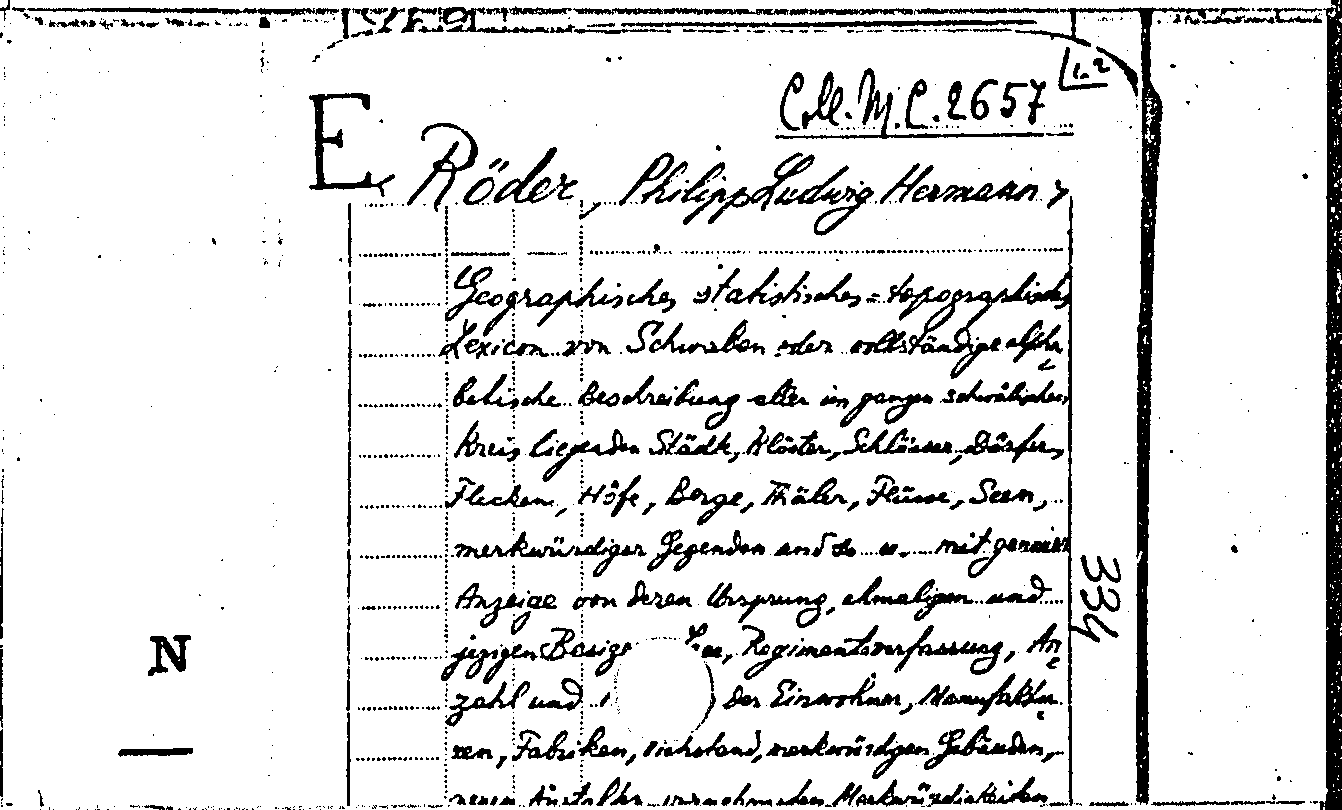 Coll. M. C. 2657
E
Röder, Philipp Ludwig Hermann,
Geographisches statistisches=topographisches
Lexicon von Schwaben oder vollständige alpha
betische Beschreibung aller im ganzen schwäbischen
Kreis liegenden Städte, Klöster, Schlösser, Dörfer,
Flecken, Höfe, Berge, Thäler, Flüsse, Seen,
merkwürdiger Gegenden und so w. mit genauer
Anzeige von deren Ursprung, ehmaligen und
jezigen Besize Regimentsverfassung, An
zahl und der Einwohner, Manufaktu
ren, Fabriken, Viehstand, merkwürdigen Gebäuden,
neuen Anstalten vornehmsten Merkwürdigkeiten
334
N